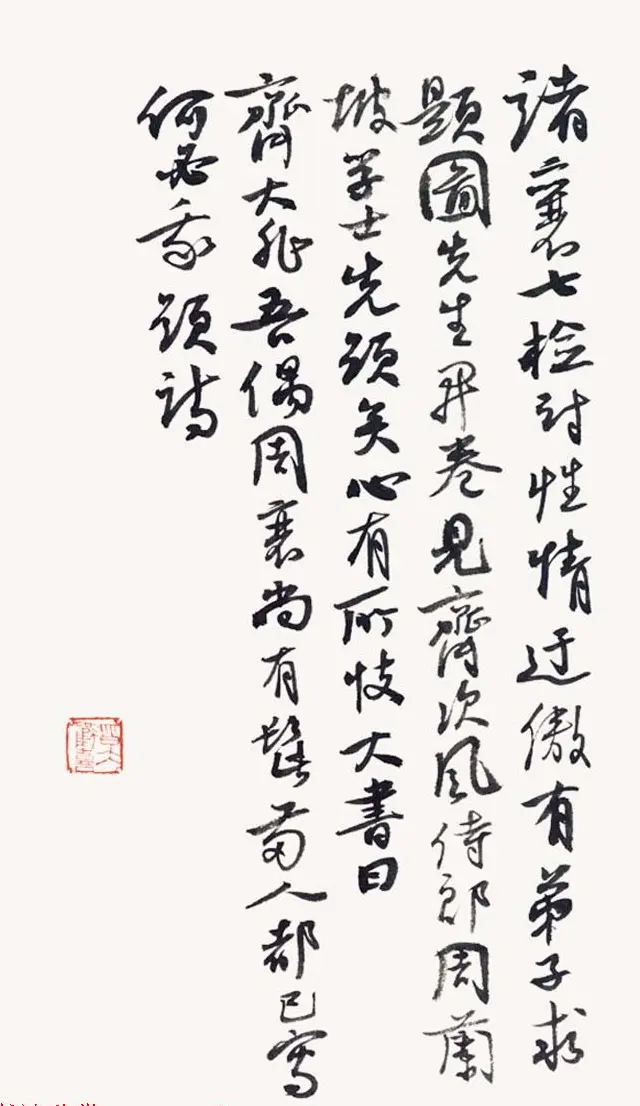 諸襄七檢討性情迂傲有弟子求
題圖先生開卷見齊次風侍郎周蘭
坡学士先題矣心有所忮大書曰
齊大非吾偶周衰尚有髭兩人都已寫
何必我題詩